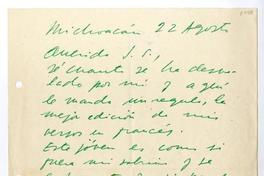 Michoacán 22 Agosto
Querido J. S.,
Sé cuanto se ha desve-
lado por mi y aquí
le mando un regalo, la
mejor edición de mis
versos en francés.
Este jóven es como si
fuera mi sobrino y se